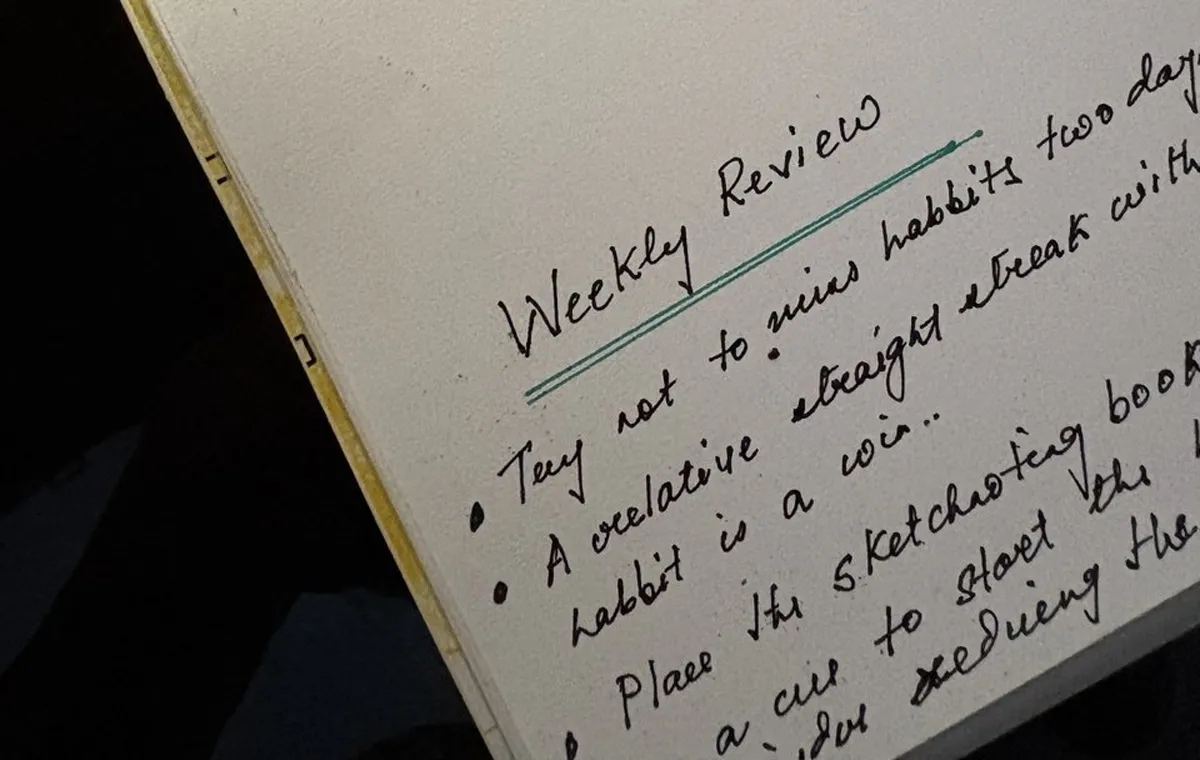 Weekly Review
Try not to miss habbits two day
A relative straight streak with
habbit is a win..
Place the sketchnoting book
a cue to start the
reducing the